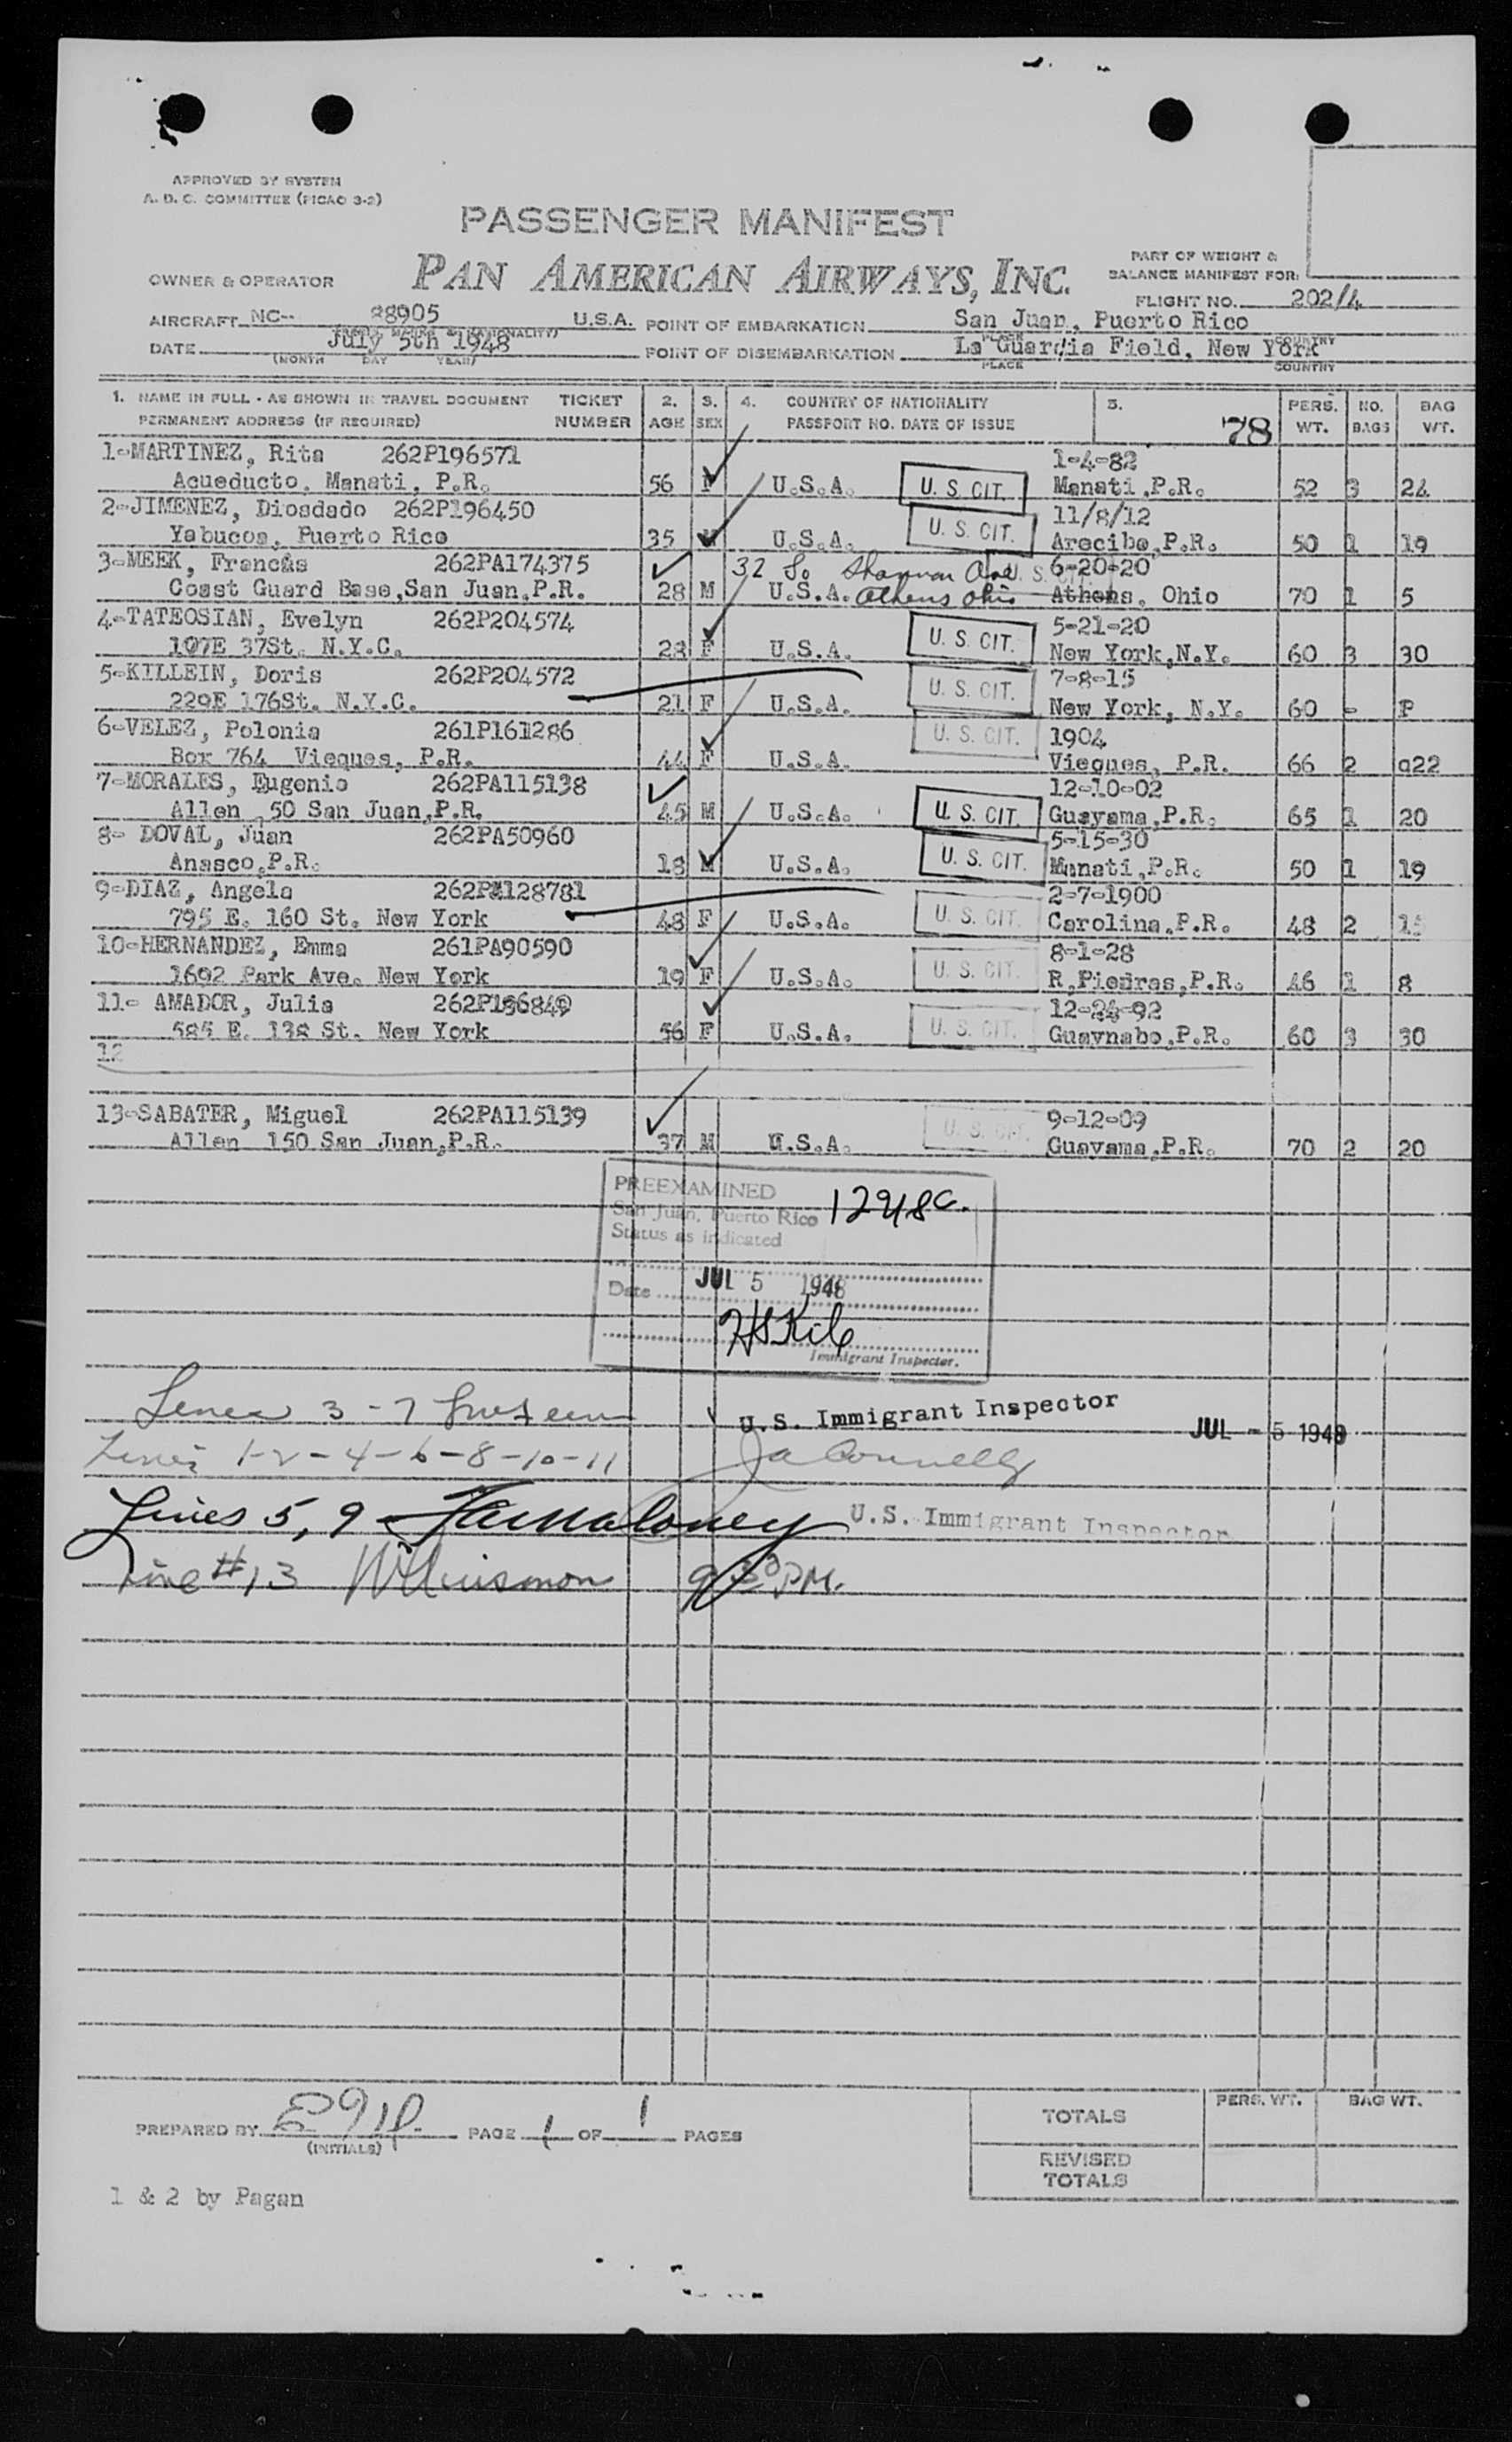 APPROVED BY SYSTEM
A. D. C. COMMITTEE (PICAO 3-2)
PASSENGER MANIFEST
PART OF WEIGHT &
BALANCE MANIFEST FOR:
OWNER & OPERATOR PAN AMERICAN AIRWAYS, INC.
FLIGHT NO. 202/4
AIRCRAFT NC-- 88905 U.S.A. POINT OF EMBARKATION San Juan, Puerto Rico
DATE July 5th 1948 POINT OF DISEMBARKATION La Guardia Field, New York
(MONTH DAY YEAR) PLACE COUNTRY
1. NAME IN FULL - AS SHOWN IN TRAVEL DOCUMENT TICKET 2. 3. 4. COUNTRY OF NATIONALITY 5. PERS. NO. BAG
PERMANENT ADDRESS (IF REQUIRED) NUMBER AGE SEX PASSPORT NO. DATE OF ISSUE 78 WT. BAGS WT.
1-MARTINEZ, Rita 262P196571 1-4-82
Acueducto, Manati, P.R. 56 F U.S.A. U. S. CIT. Manati,P.R. 52 3 24
2-JIMENEZ, Diosdado 262P196450 11/8/12
Yabucoa, Puerto Rico 35 M U.S.A. U. S. CIT. Arecibo,P.R. 50 1 19
3-MEEK, Francis 262PA174375 32 So Shannon Ave U. S. CIT. 6-20-20
Coast Guard Base,San Juan,P.R. 28 M U.S.A. Athens Ohio Athens, Ohio 70 1 5
4-TATEOSIAN, Evelyn 262P204574 5-21-20
107E 37St. N.Y.C. 28 F U.S.A. U. S. CIT. New York,N.Y. 60 3 30
5-KILLEIN, Doris 262P204572 7-8-15
229E 176St. N.Y.C. 21 F U.S.A. U. S. CIT. New York, N.Y. 60 - P
6-VELEZ, Polonia 261P161286 1904
Box 764 Vieques, P.R. 44 F U.S.A. U. S. CIT. Vieques, P.R. 66 2 a22
7-MORALES, Eugenio 262PA115138 12-10-02
Allen 50 San Juan,P.R. 45 M U.S.A. U. S. CIT. Guayama,P.R. 65 1 20
8- DOVAL, Juan 262PA50960 5-15-30
Anasco,P.R. 18 M U.S.A. U. S. CIT. Manati,P.R. 50 1 19
9-DIAZ, Angela 262PA128781 2-7-1900
795 E. 160 St. New York 48 F U.S.A. U. S. CIT. Carolina,P.R. 48 2
10-HERNANDEZ, Emma 261PA90590 8-1-28
1692 Park Ave. New York 19 F U.S.A. U. S. CIT. R,Piedras,P.R. 46 1 8
11- AMADOR, Julia 12-24-92
585 E. 138 St. New York 56 F U.S.A. U. S. CIT. Guaynabo,P.R. 60 3 30
12
13-SABATER, Miguel 262PA115139 9-12-09
Allen 150 San Juan,P.R. 37 M U.S.A. U. S. CIT. Guayama,P.R. 70 2 20
PREEXAMINED
San Juan, Puerto Rico
Status as indicated
Date JUL 5 1948
Immigrant Inspector.
Lines 3-7
U.S. Immigrant Inspector JUL - 5 1948
Lines 1-2-4-6-8-10-11 Ja Connelly
Lines 5, 9 U.S. Immigrant Inspector
Line #13 9 30 PM.
PREPARED BY PAGE 1 OF 1 PAGES
(INITIALS)
PERS. WT. BAG WT.
TOTALS
REVISED
TOTALS
1 & 2 by Pagan